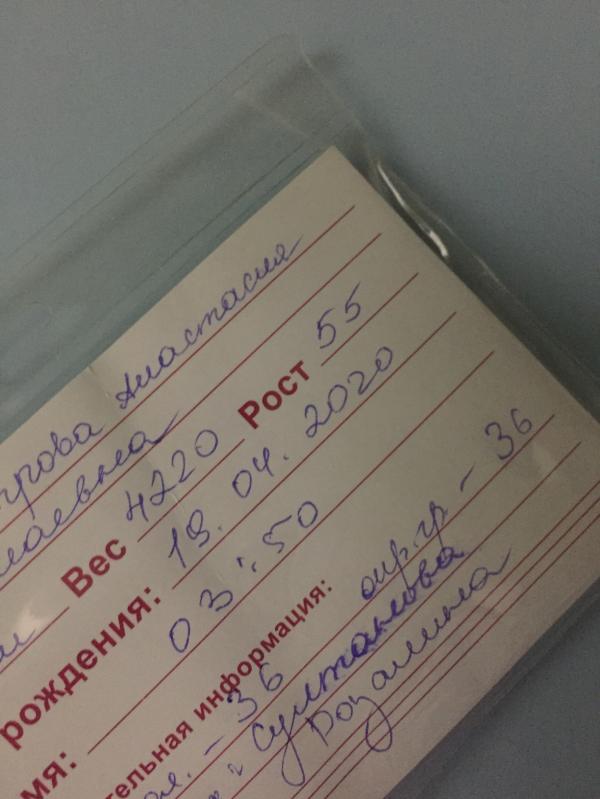 трова Анастасия
лаевна
Вес 4220 Рост 55
рождения: 19.04.2020
мя: 03:50
тельная информация:
ол. - 36 окр.гр - 36
Султанова
Розалина